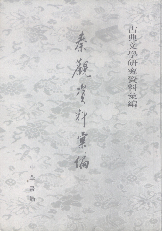 古典文學研究資料彙編
秦觀資料彙編